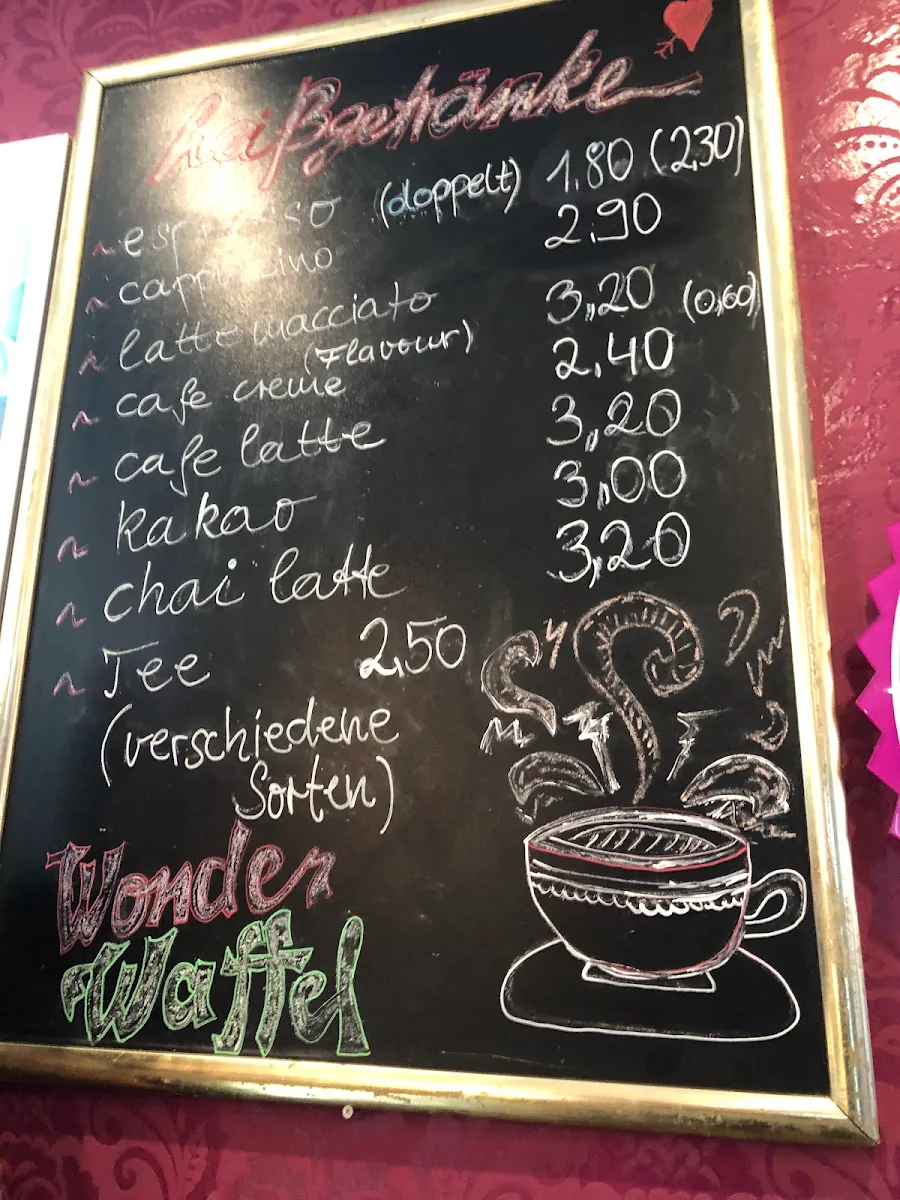 heißgetränke
~ espresso (doppelt) 1,80 (2,30)
~ cappuccino 2,90
~ latte macciato 3,20 (0,60)
(Flavour)
~ cafe creme 2,40
~ cafe latte 3,20
~ kakao 3,00
~ chai latte 3,20
~ Tee 2,50
(verschiedene
Sorten)
Wonder
Waffel